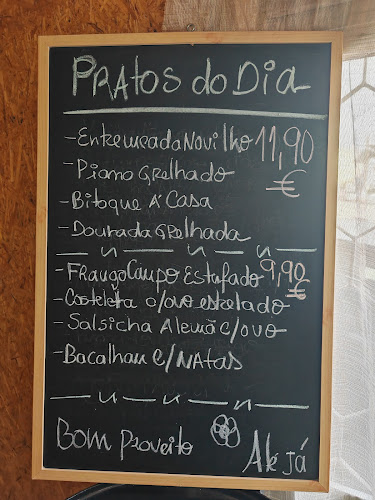 Pratos do Dia
- Entremeada Novilho 11,90
- Piano Grelhado €
- Bitoque A' Casa
- Dourada Grelhada
- Frango Campo Estufado 9,90
- Costeleta c/ovo estrelado €
- Salsicha Alemã c/ovo
- Bacalhau c/Natas
Bom Proveito Até Já